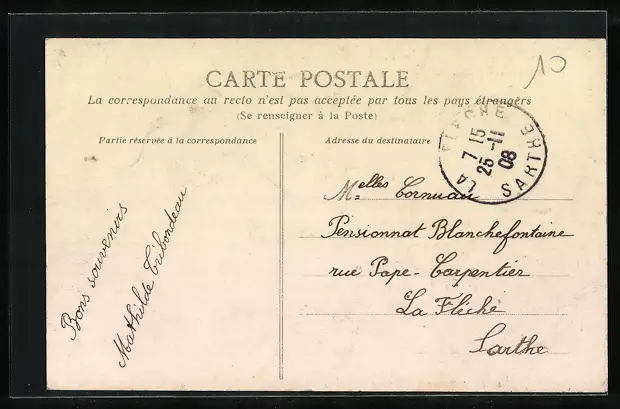 10
CARTE POSTALE
La correspondance au recto n'est pas acceptée par tous les pays étrangers
(Se renseigner à la Poste)
Partie réservée à la correspondance
Adresse du destinataire
LA FLECHE
7 15
25 -11
08
SARTHE
Bons souvenirs
Mathilde Tribondeau
Melles Cornuau
Pensionnat Blanchefontaine
rue Pape-Carpentier
La Flèche
Sarthe